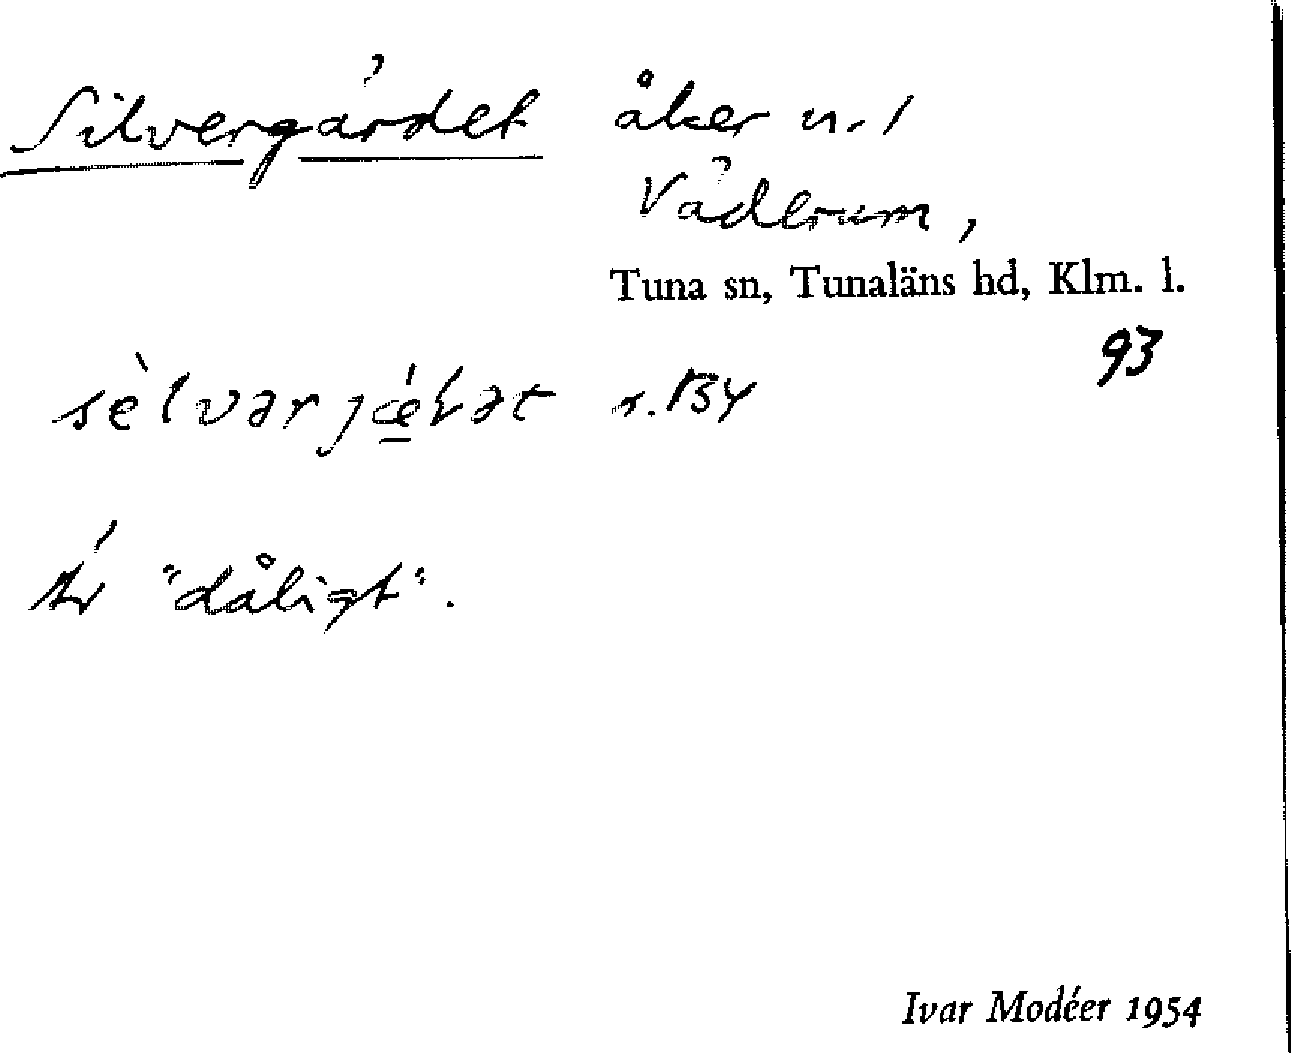 Silvergärdet åker n. 1
Väderum,
Tuna sn, Tunaläns hd, Klm. l.
93
sèlvarjǽɽət r. 134
Är "dåligt".
Ivar Modéer 1954